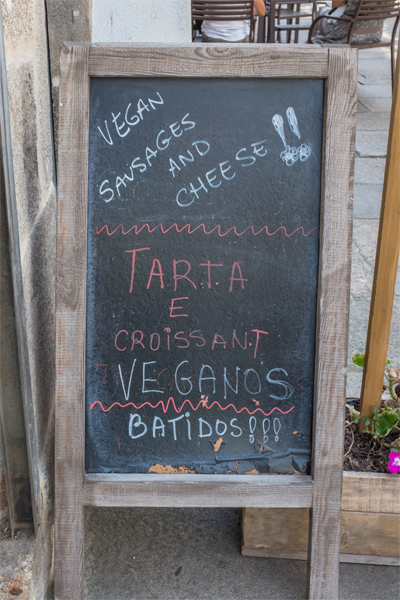 VEGAN
SAUSAGES
AND
CHEESE!!
TARTA
E
CROISSANT
VEGANOS
BATIDOS!!!